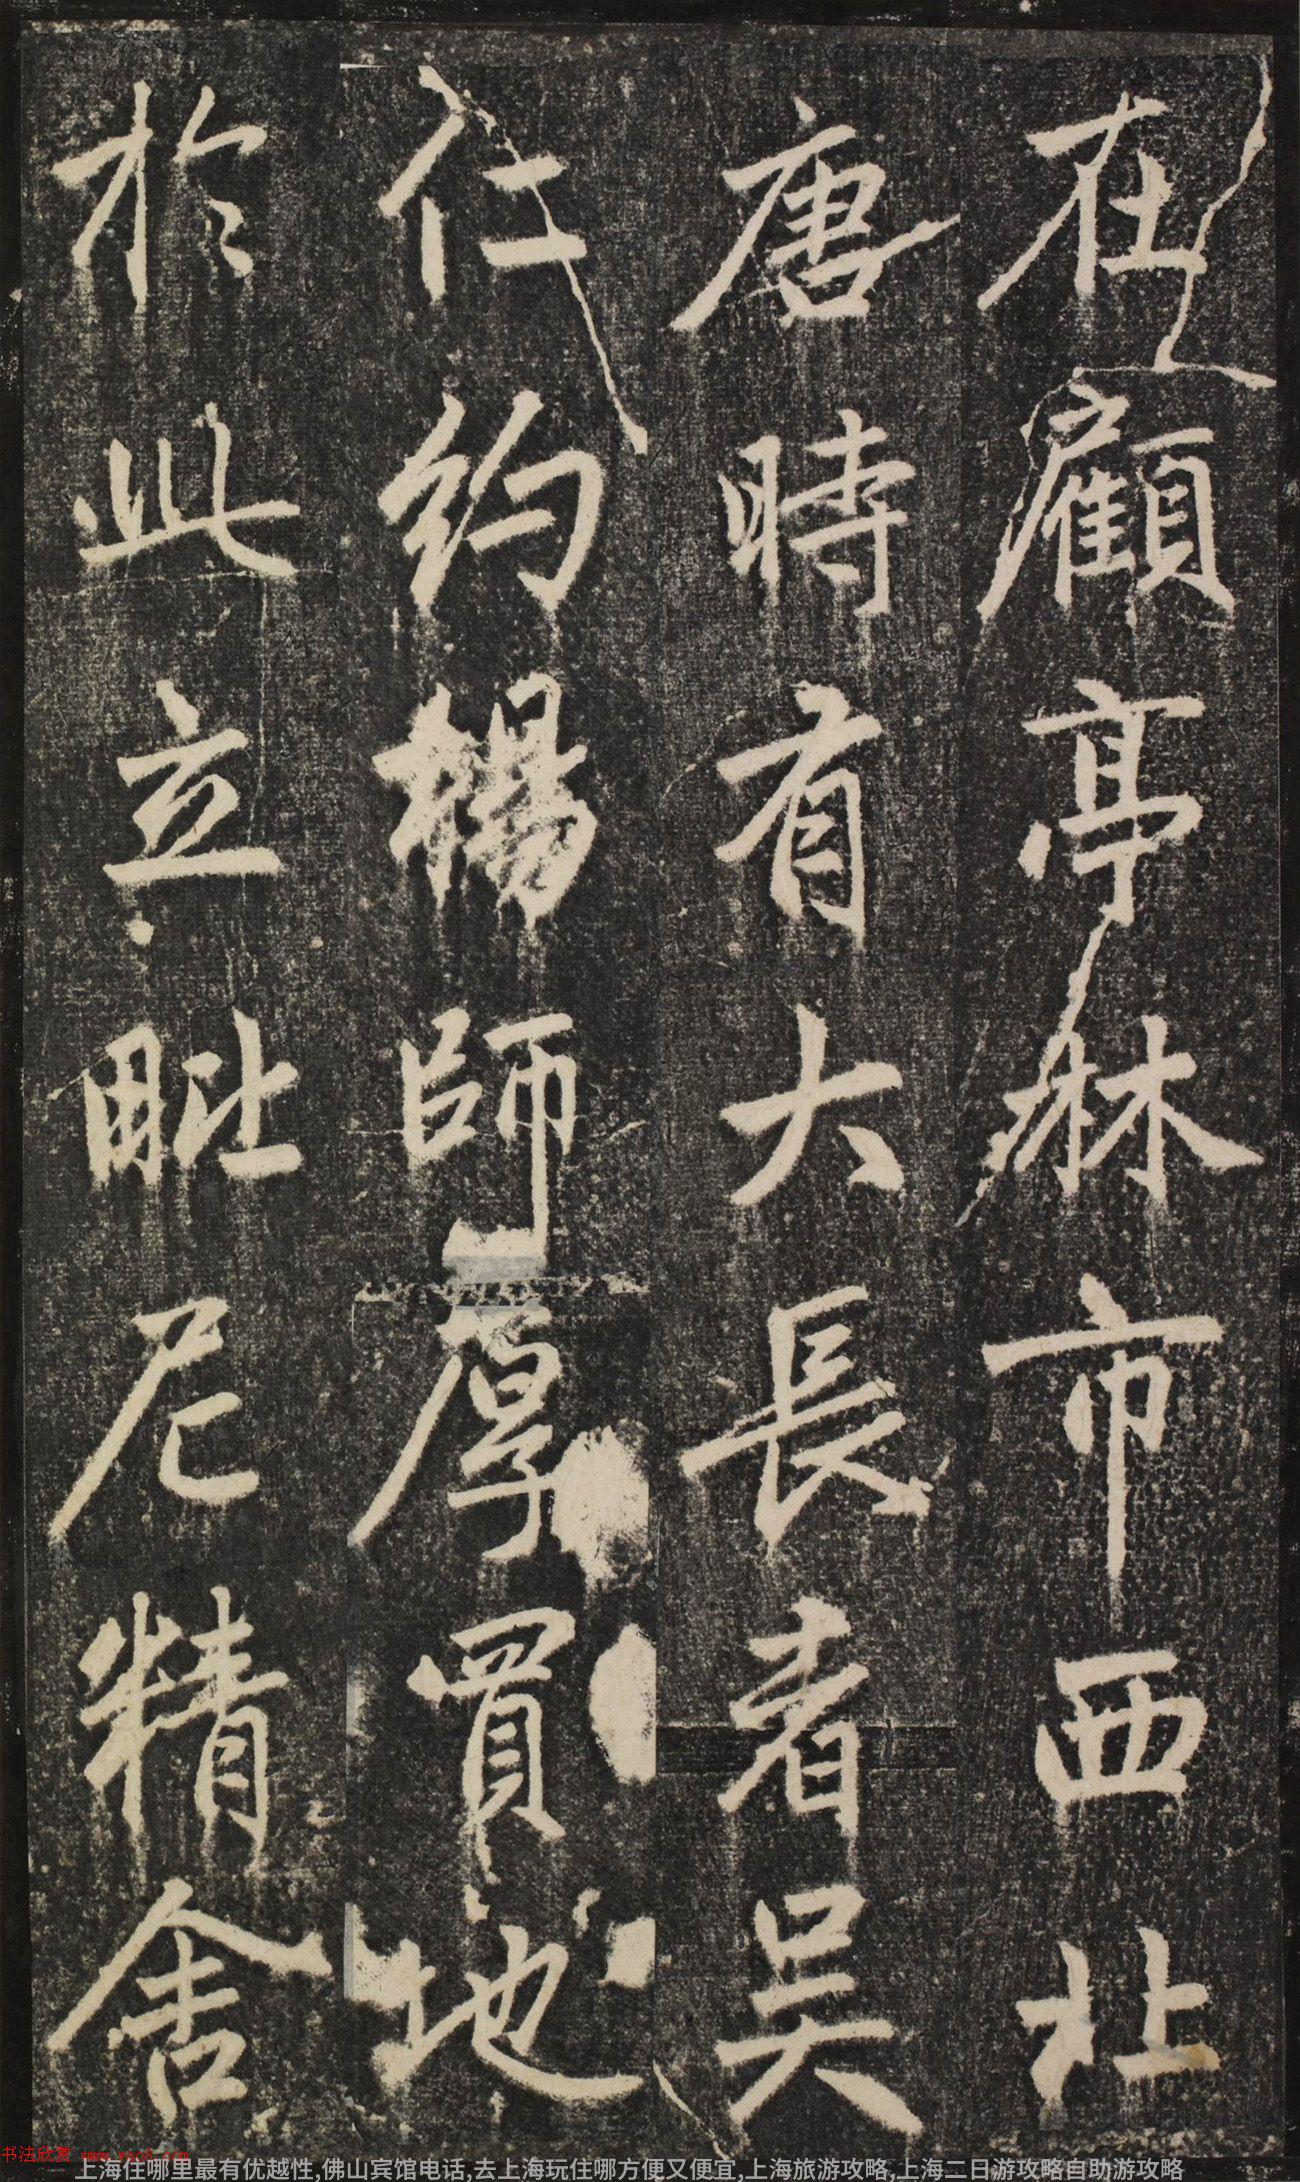 在顧亭林市西北
唐時有大長者吳
仁約楊師厚買地
於此立毗尼精舍
书法欣赏
上海住哪里最有优越性,佛山宾馆电话,去上海玩住哪方便又便宜,上海旅游攻略,上海二日游攻略自助游攻略